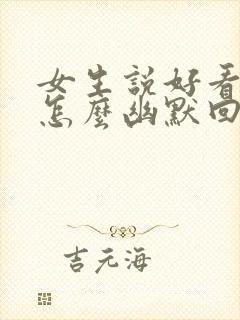 女生説好看
怎麼幽默回
吉元海